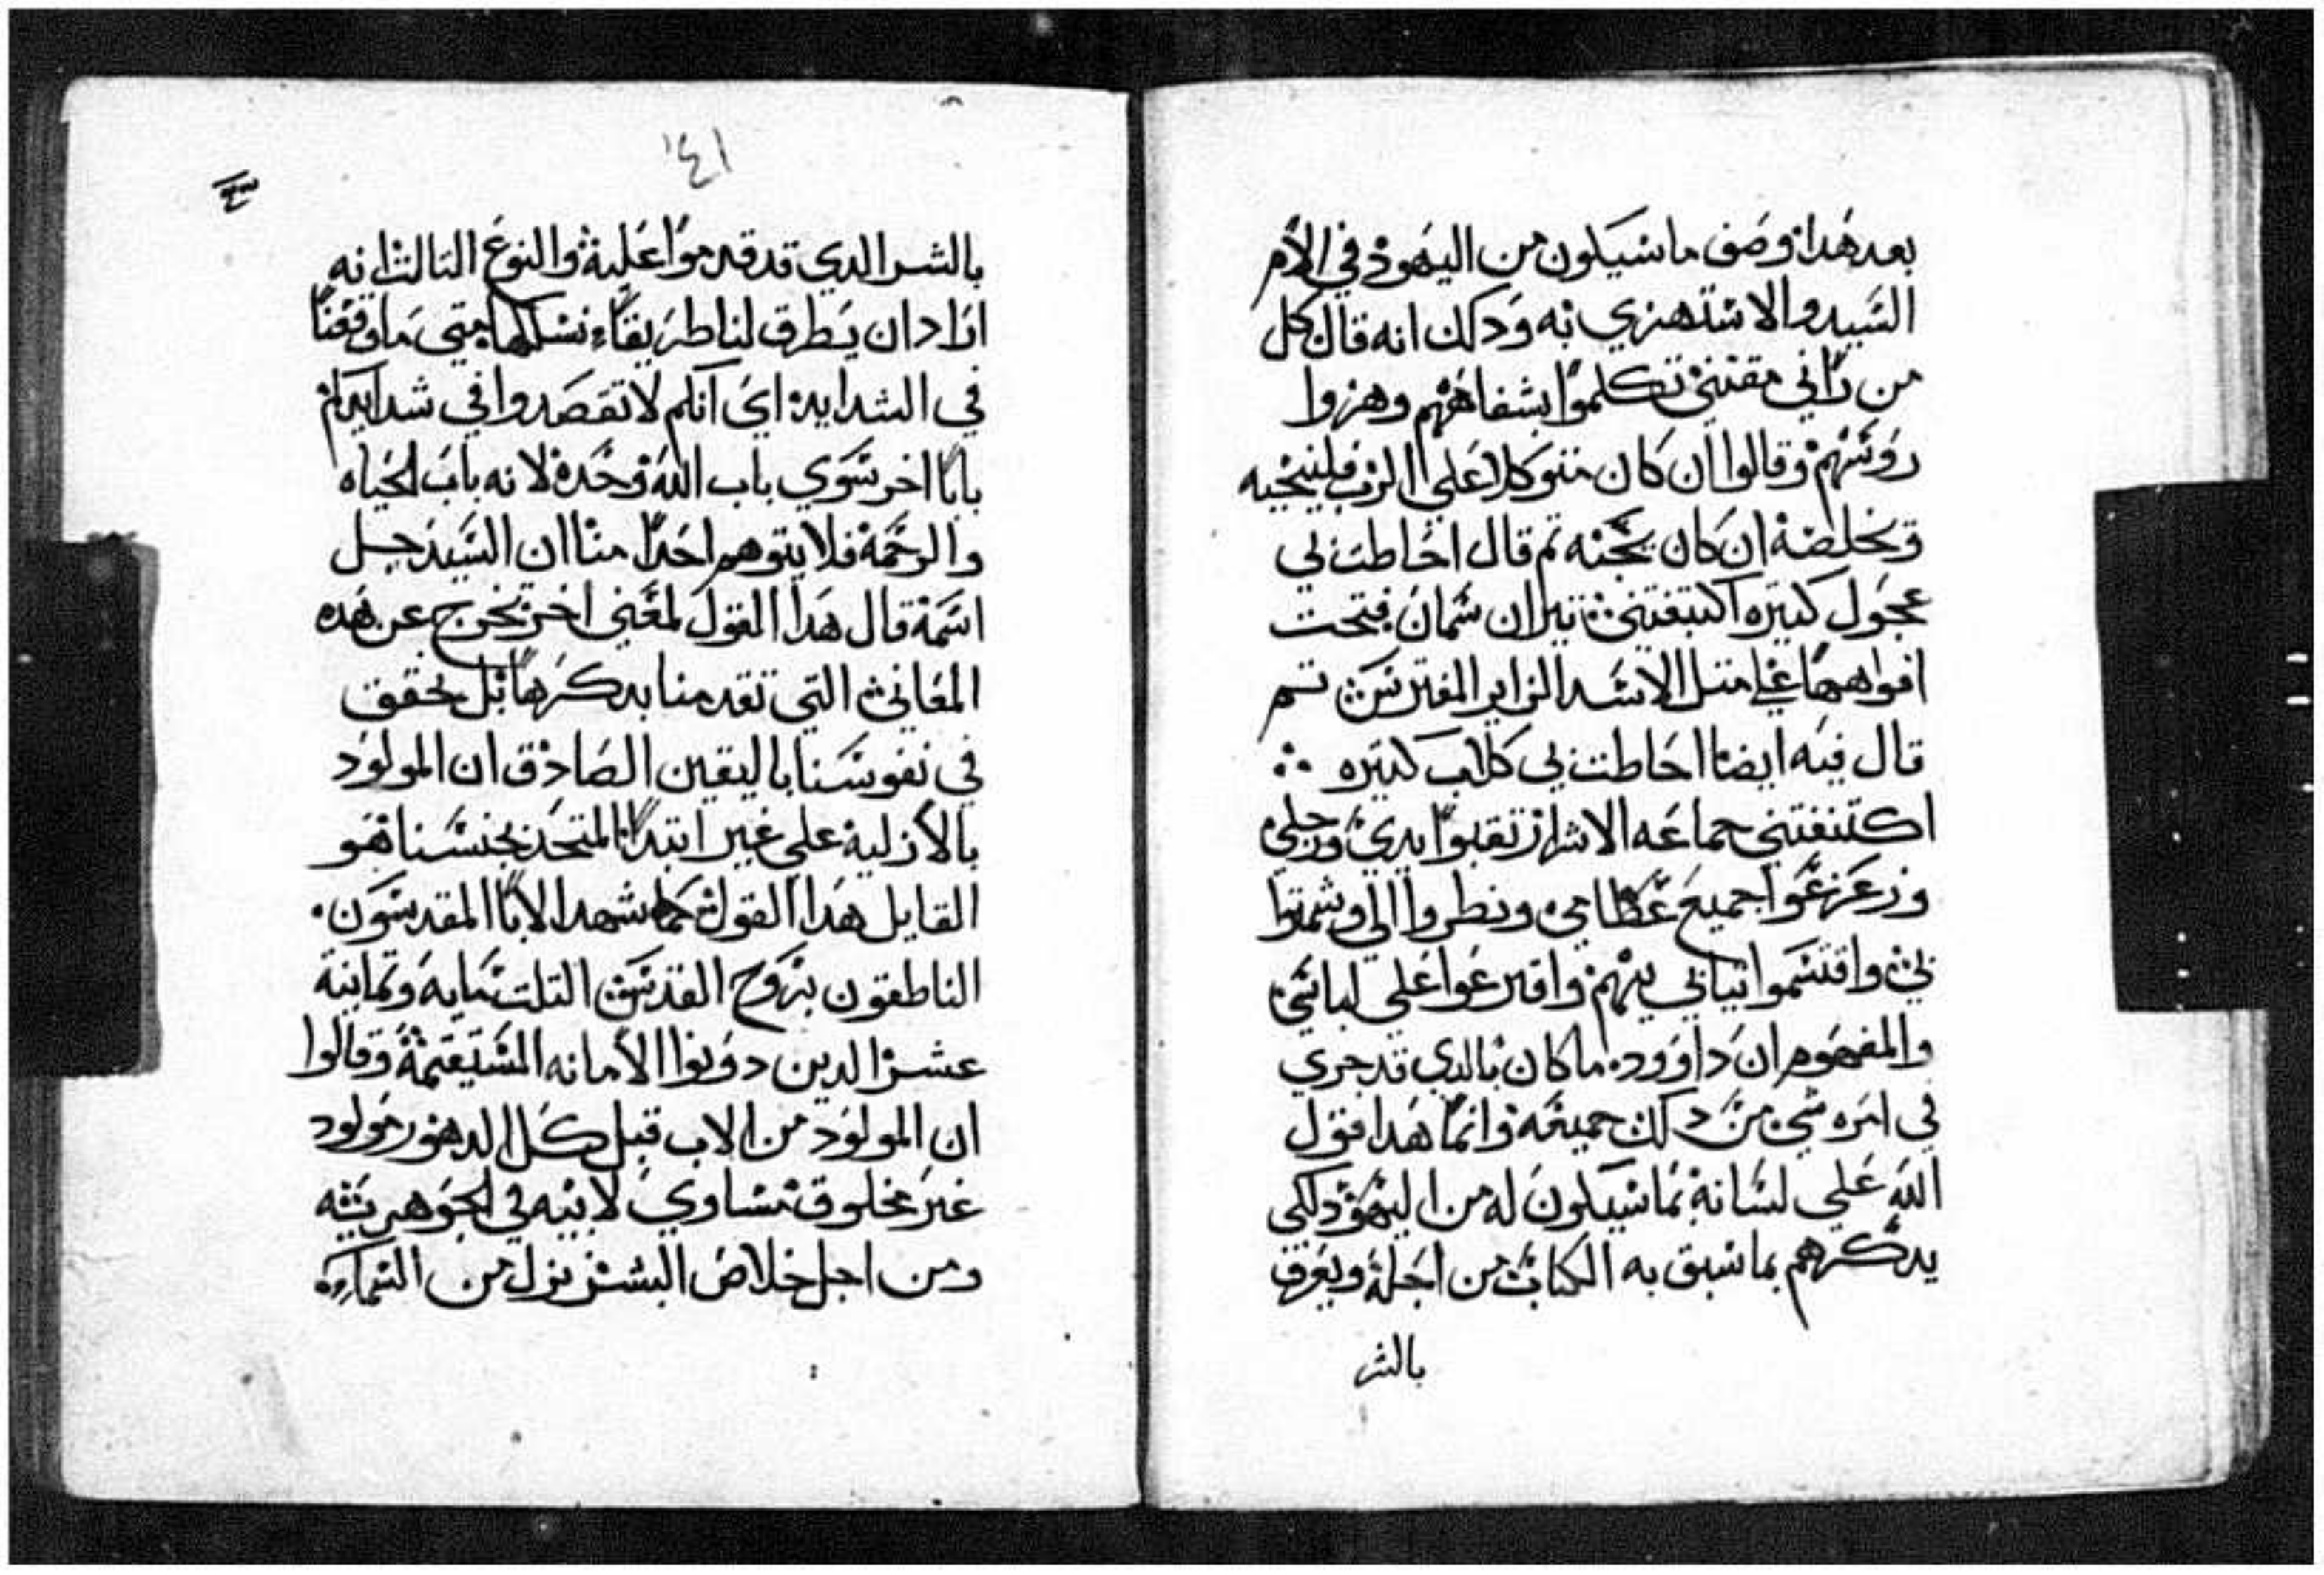 بعد هدا وصف ما سيكون من اليهود في الام
السيد والاستهزي به ودلك انه قال كل
من راني مقتني تكلموا بشفاههم وهزوا
روسهم وقالوا ان كان متوكلا علي الرب فلينجيه
ويخلصه ان كان يحبه تم قال احاطت بي
عجول كتيره اكتنفتني تيران سمان فتحت
افواهها علي متل الاسد الزاير المفترس تم
قال فيه ايضا احاطت بي كلاب كتيره
اكتنفتني جماعه الاشرار تقبوا يدي ورجلي
وزعزعوا جميع عظامي ونطروا الي وشمتوا
بي واقتسموا تيابي بينهم واقترعوا علي لباسي
والمفهوم ان داوود ما كان بالدي قد جري
في امره شي من دلك جميعه وانما هدا قول
الله علي لسانه بما سيكون له من اليهود لكي
يدكرهم بما سبق به الكتاب من اجله ويعرف
بالشر
١٤١
بالشر الدي قد قدموا عليه والنوع التالت انه
اراد ان يطرق لنا طريقا نسلكها متي ما وقعنا
في الشدايد اي انكم لا تقصدوا في شدايدكم
بابا اخر سوي باب الله وحده لانه باب الحياه
والرحمة فلا يتوهم احدا منا ان السيد جل
اسمه قال هدا القول لمعني اخر يخرج عن هده
المعاني التي تقدمنا بدكرها بل يحقق
في نفوسنا باليقين الصادق ان المولود
بالازلية علي غير ابتدا المتحد بجنسنا هو
القايل هدا القول كما شهد الابا المقدسون
الناطقون بروح القدس التلتمايه وتمانية
عشر الدين دونوا الامانه المستقيمة وقالوا
ان المولود من الاب قبل كل الدهور مولود
غير مخلوق مساوي لابيه في الجوهريته
ومن اجل خلاص البشر نزل من السما